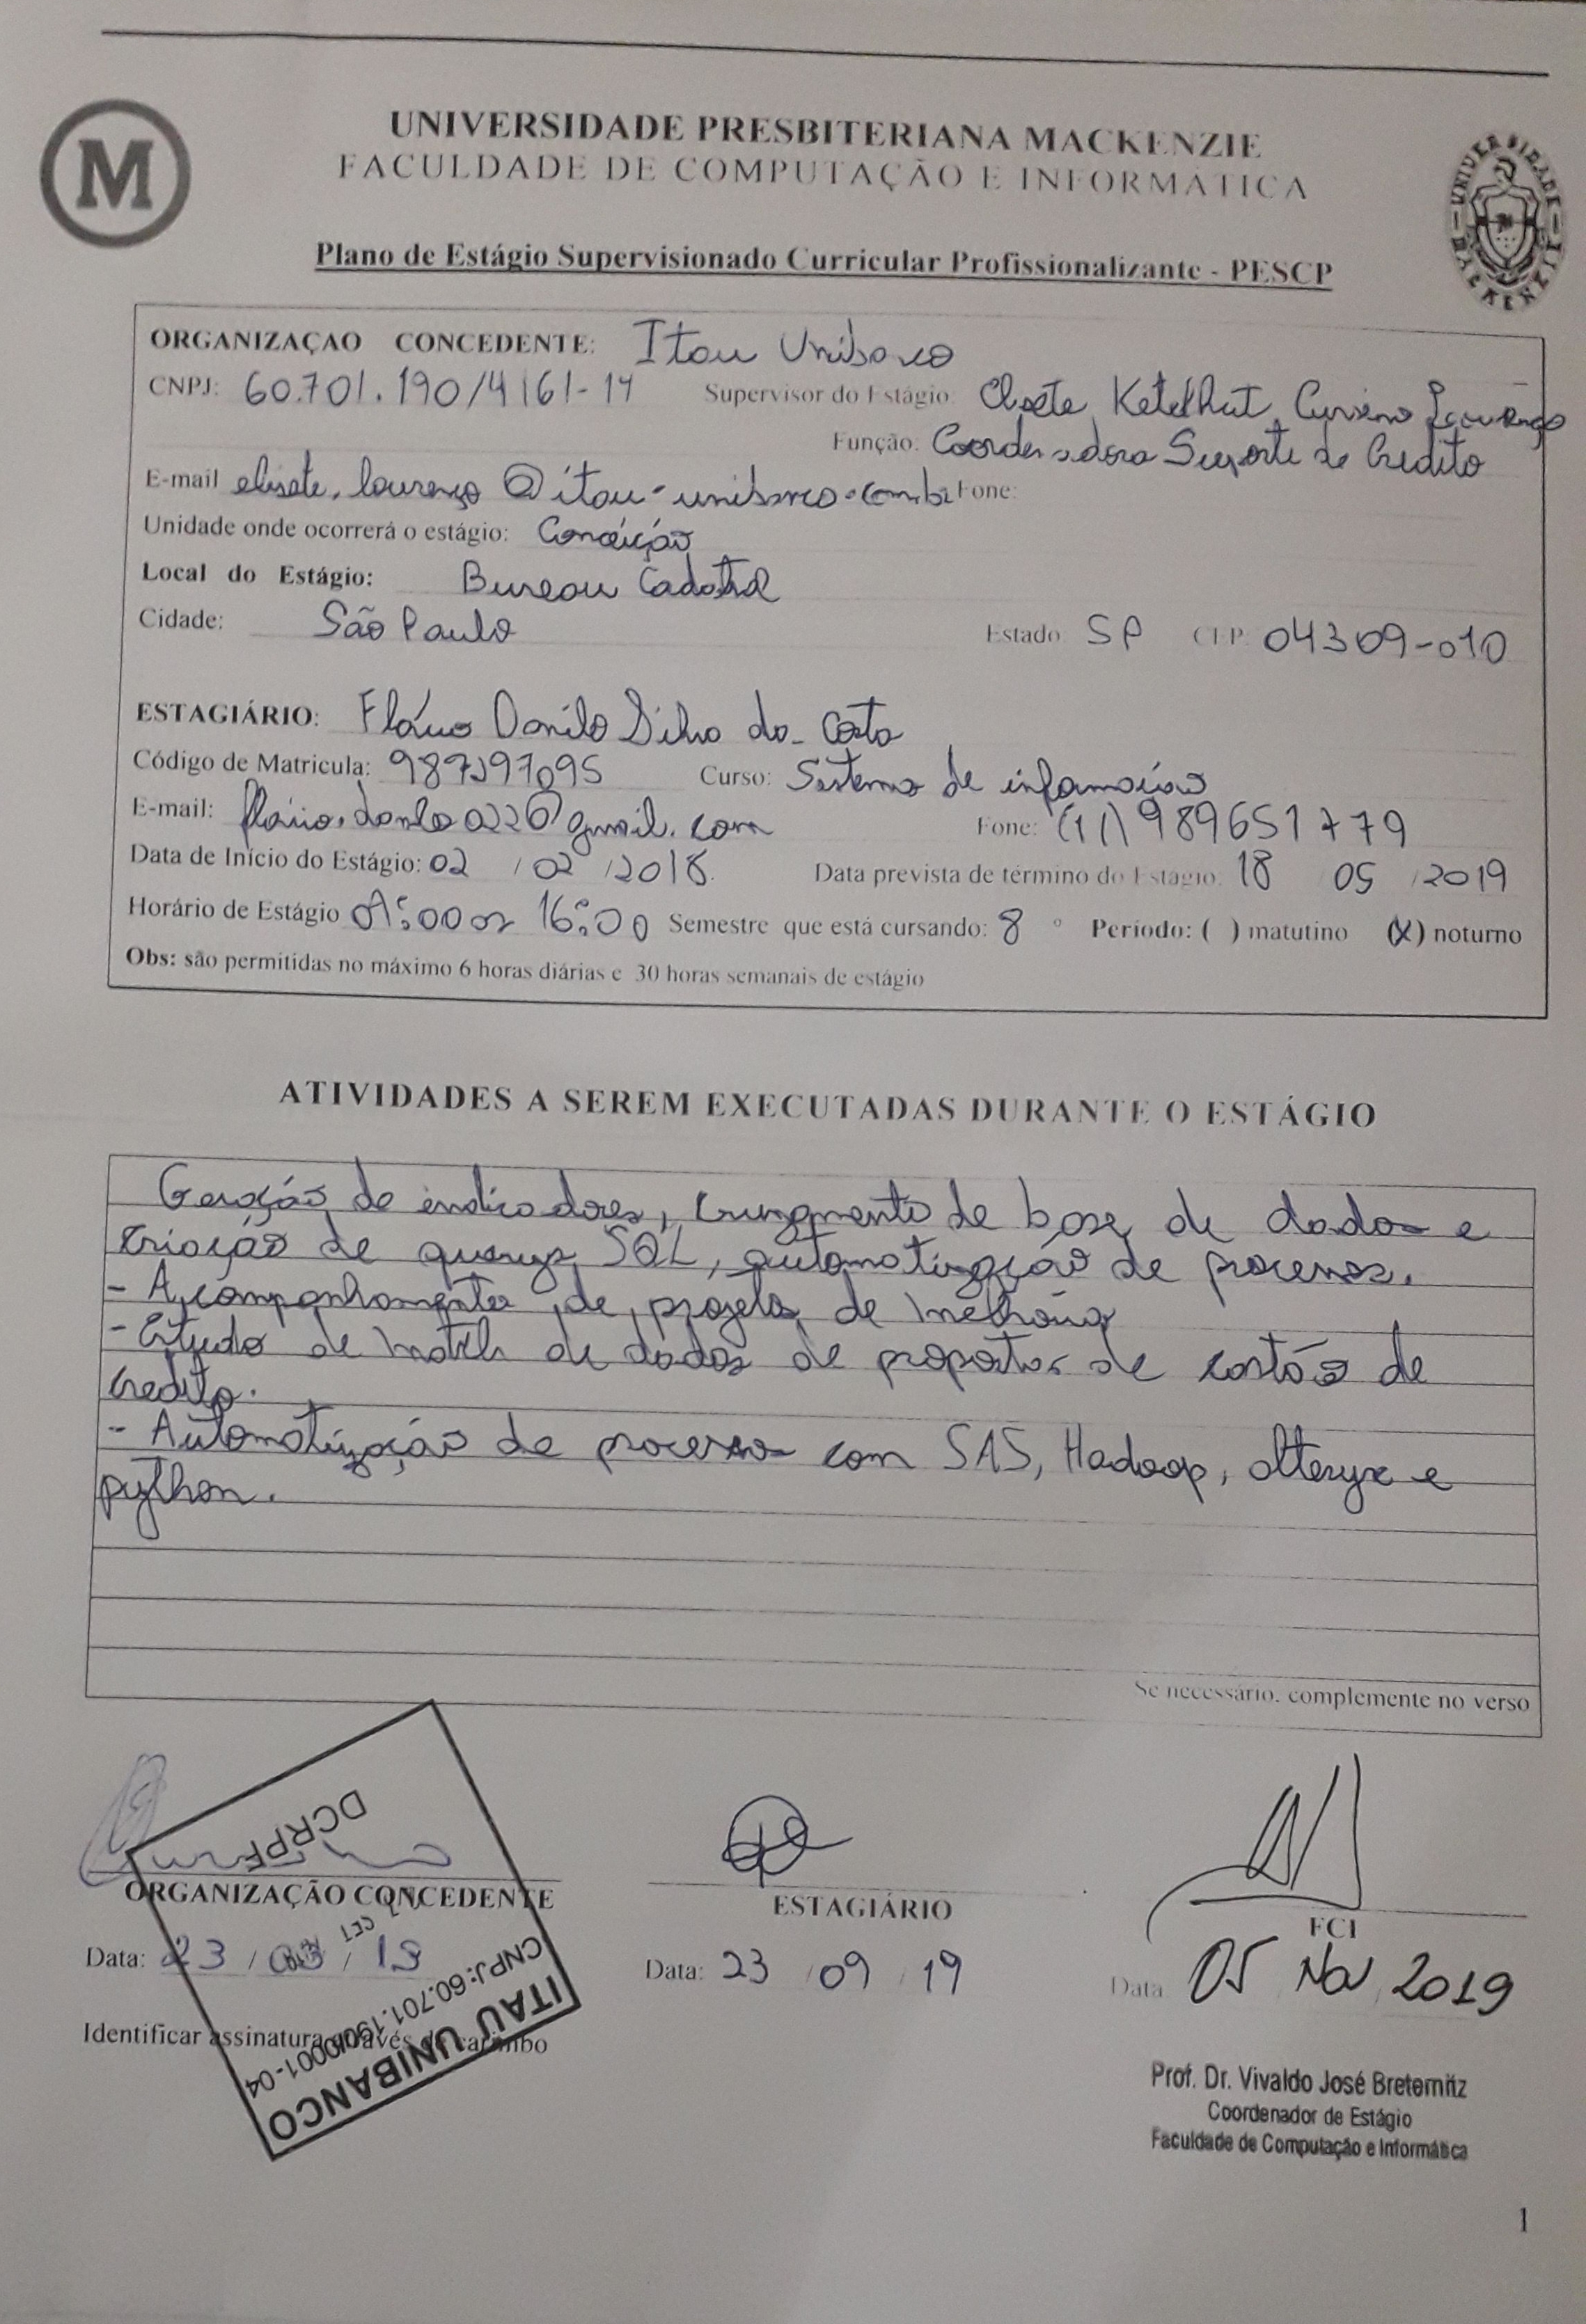 M
UNIVERSIDADE PRESBITERIANA MACKENZIE
FACULDADE DE COMPUTAÇÃO E INFORMÁTICA
UNIVERSIDADE MACKENZIE
Plano de Estágio Supervisionado Curricular Profissionalizante - PESCP
ORGANIZAÇAO CONCEDENTE: Itau Unibanco
CNPJ: 60.701.190/4161-14 Supervisor do Estágio: Elisete Ketelhut Lourenço
Função: Coordenadora Suporte de Credito
E-mail elisete.lourenço@itau-unibanco.com.br Fone:
Unidade onde ocorrerá o estágio: Conceição
Local do Estágio: Bureau Cadastral
Cidade: São Paulo Estado: SP CEP: 04309-010
ESTAGIÁRIO: Flávio Danilo Silva da Costa
Código de Matricula: Curso: Sistema de informação
E-mail: flávio.danilo022@gmail.com Fone: (11) 989651779
Data de Início do Estágio: 02 / 02 / 2018. Data prevista de término do Estágio: 18 05 / 2019
Horário de Estágio 16:00 Semestre que está cursando: 8 º Período: ( ) matutino (X) noturno
Obs: são permitidas no máximo 6 horas diárias e 30 horas semanais de estágio
ATIVIDADES A SEREM EXECUTADAS DURANTE O ESTÁGIO
Geração de indicadores, cruzamento de base de dados e
criação de querys SQL, automatização de processos.
- Acompanhamento de projeto de melhoria
- Estudo de match de dados de propostas de cartão de
credito.
- Automatização de processo com SAS, Hadoop, alteryx e
python.
Se necessário, complemente no verso
DCRPF
ORGANIZAÇÃO CONCEDENTE
ESTAGIÁRIO
FCI
Data: 23 / / 19
Data: 23 / 09 / 19
Data 05 Nov 2019
Identificar assinatura através de carimbo
CNPJ: 60.701.190/0001-04
ITAÚ UNIBANCO
Prof. Dr. Vivaldo José Breternitz
Coordenador de Estágio
Faculdade de Computação e Informática
1